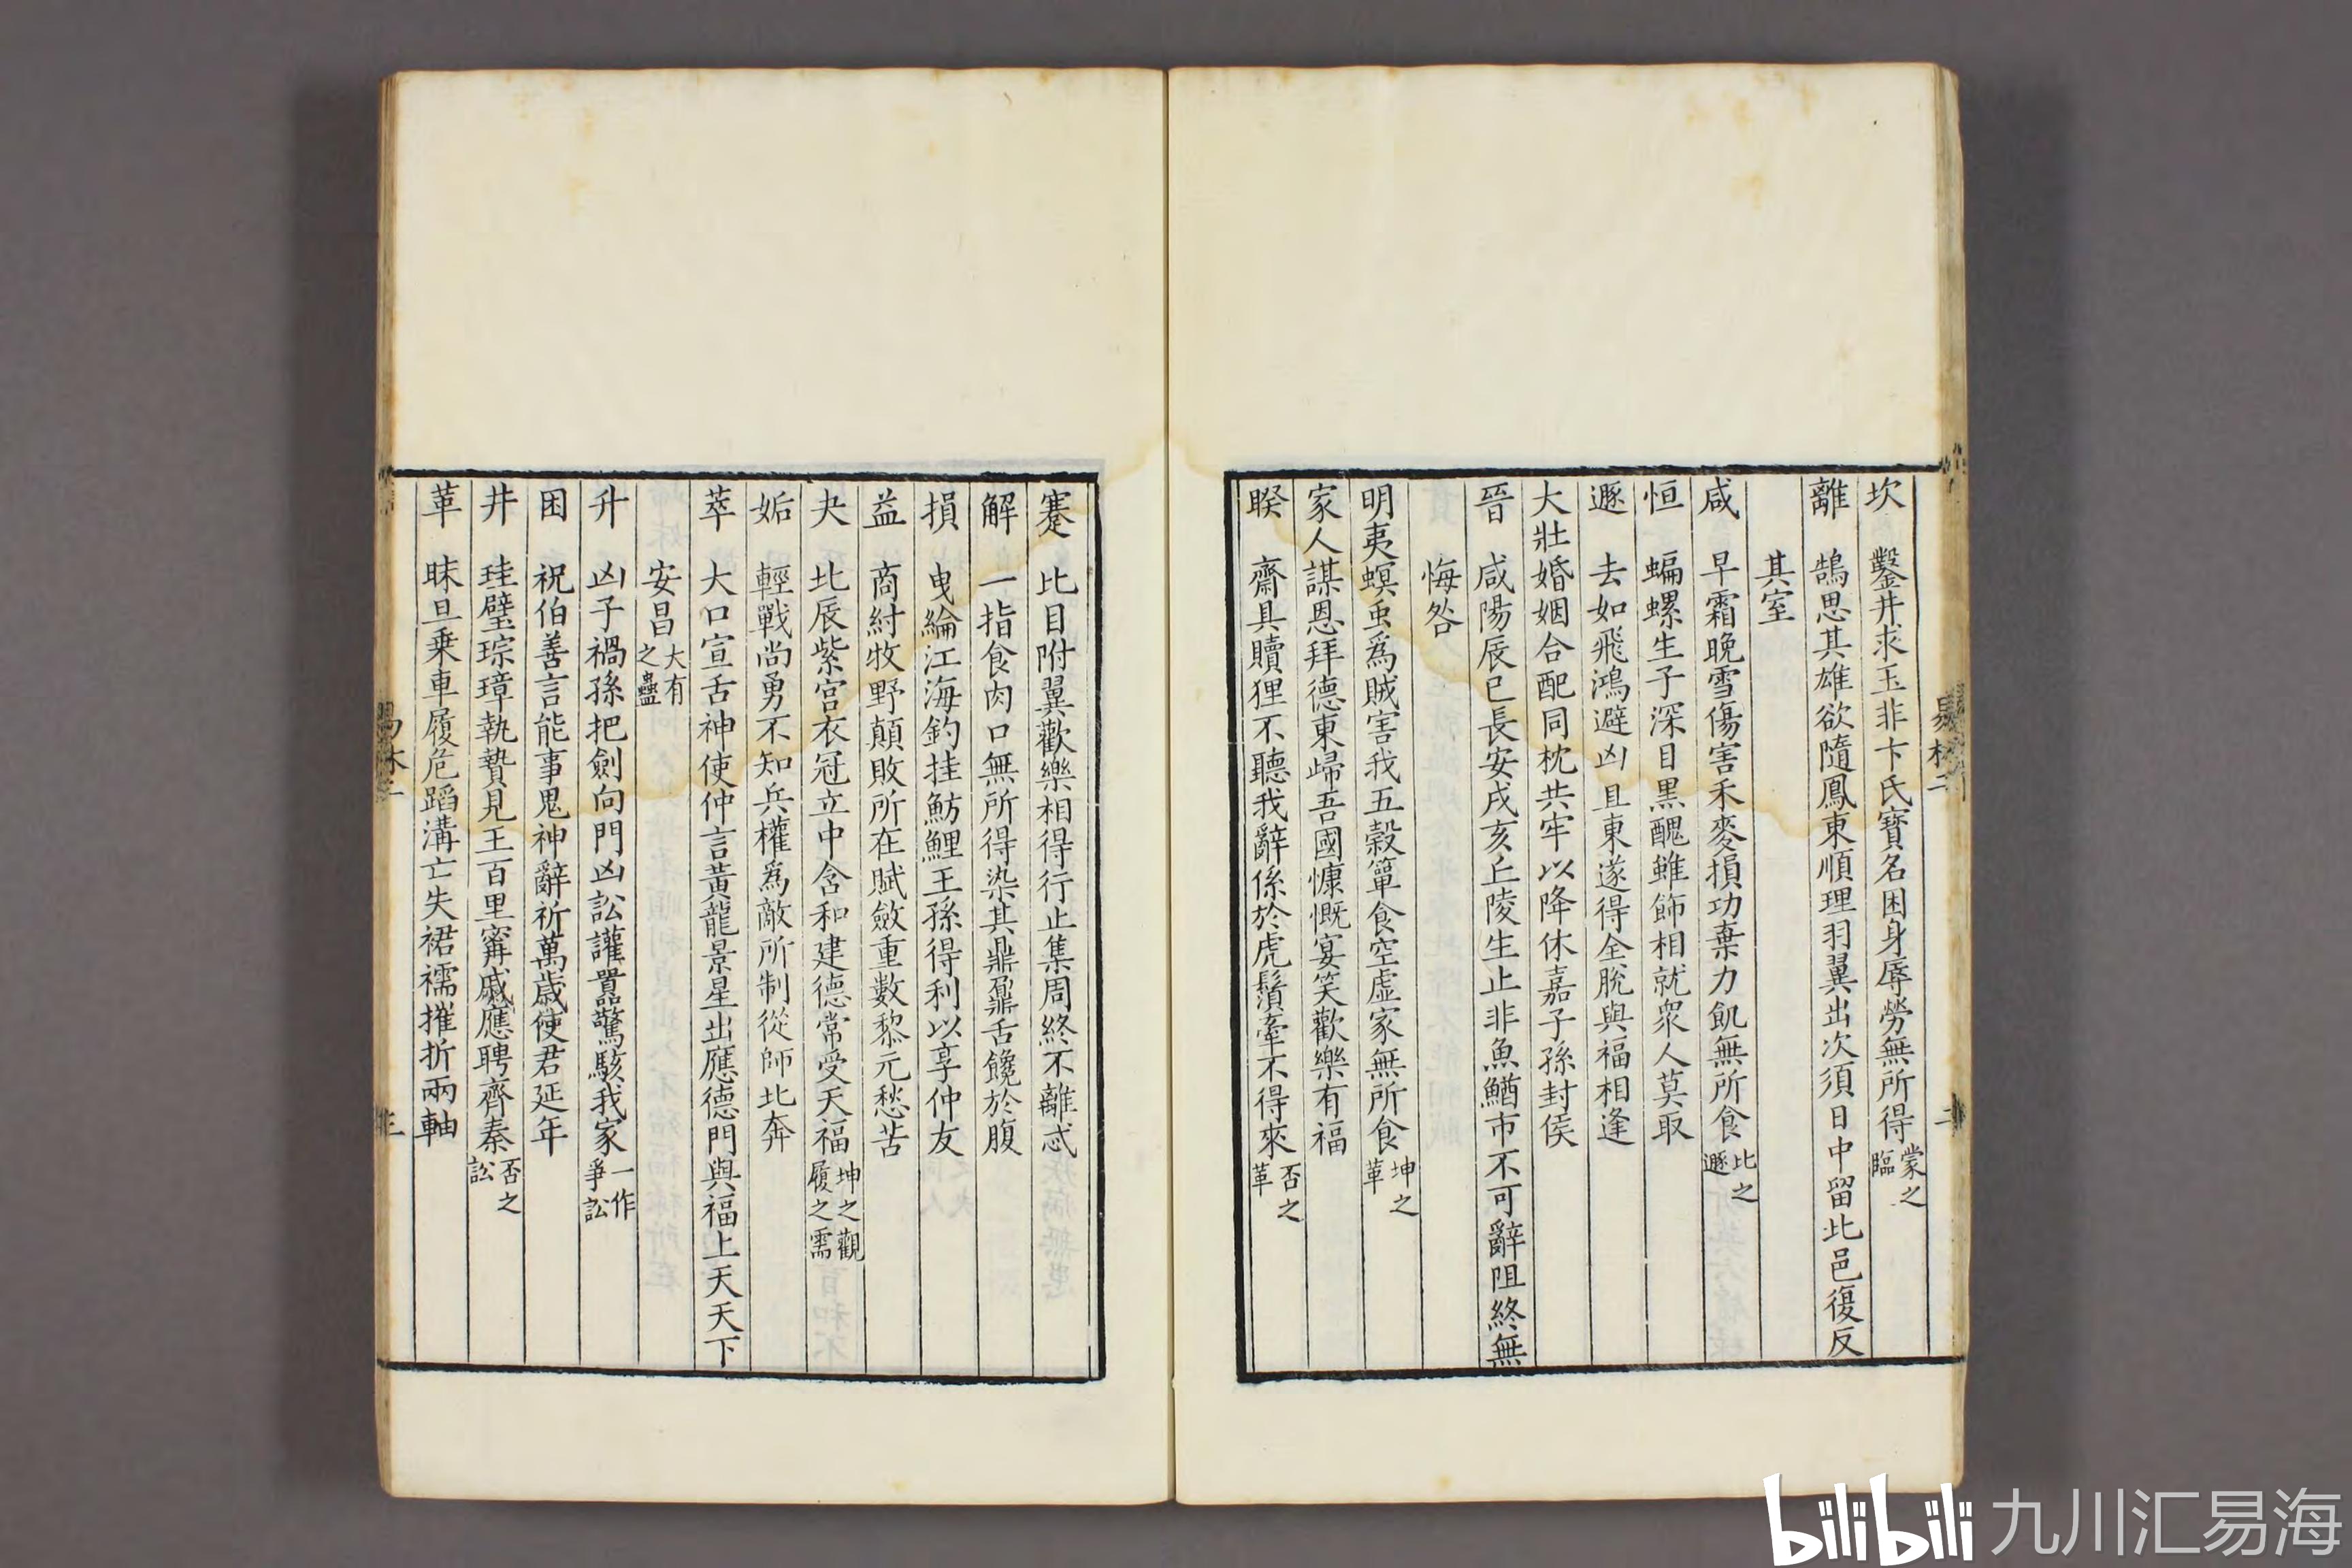 坎 鑿井求玉非卞氏寶名困身辱勞無所得 蒙之臨
離 鵠思其雄欲隨鳳東順理羽翼出次須日中留北邑復反
其室
咸 早霜晚雪傷害禾麥損功棄力飢無所食 比之遯
恒 蝙螺生子深目黑醜雖飾相就衆人莫取
遯 去如飛鴻避凶且東遂得全脫與福相逢
大壯 婚姻合配同枕共牢以降休嘉子孫封侯
晉 咸陽辰巳長安戌亥丘陵生止非魚鰌市不可辭阻終無
悔咎
明夷 螟虫爲賊害我五穀簞食空虛家無所食 坤之革
家人 謀恩拜德東歸吾國慷慨宴笑歡樂有福
睽 齋具贖狸不聽我辭係於虎鬚牽不得來 否之革
易林二
二
蹇 比目附翼歡樂相得行止集周終不離忒
解 一指食肉口無所得染其鼎鼐舌饞於腹
損 曳綸江海釣挂魴鯉王孫得利以享仲友
益 商紂牧野顛敗所在賦斂重數黎元愁苦
夬 北辰紫宫衣冠立中含和建德常受天福 坤之觀履之需
姤 輕戰尚勇不知兵權爲敵所制從師北奔
萃 大口宣舌神使仲言黃龍景星出應德門與福上天天下
安昌 大有之蠱
升 凶子禍孫把劍向門凶訟讙嚚驚駭我家 一作爭訟
困 祝伯善言能事鬼神辭祈萬歲使君延年
井 珪璧琮璋執贄見王百里甯戚應聘齊秦 否之訟
革 昧旦乗車履危蹈溝亡失裙襦摧折兩軸
bilibili 九川汇易海